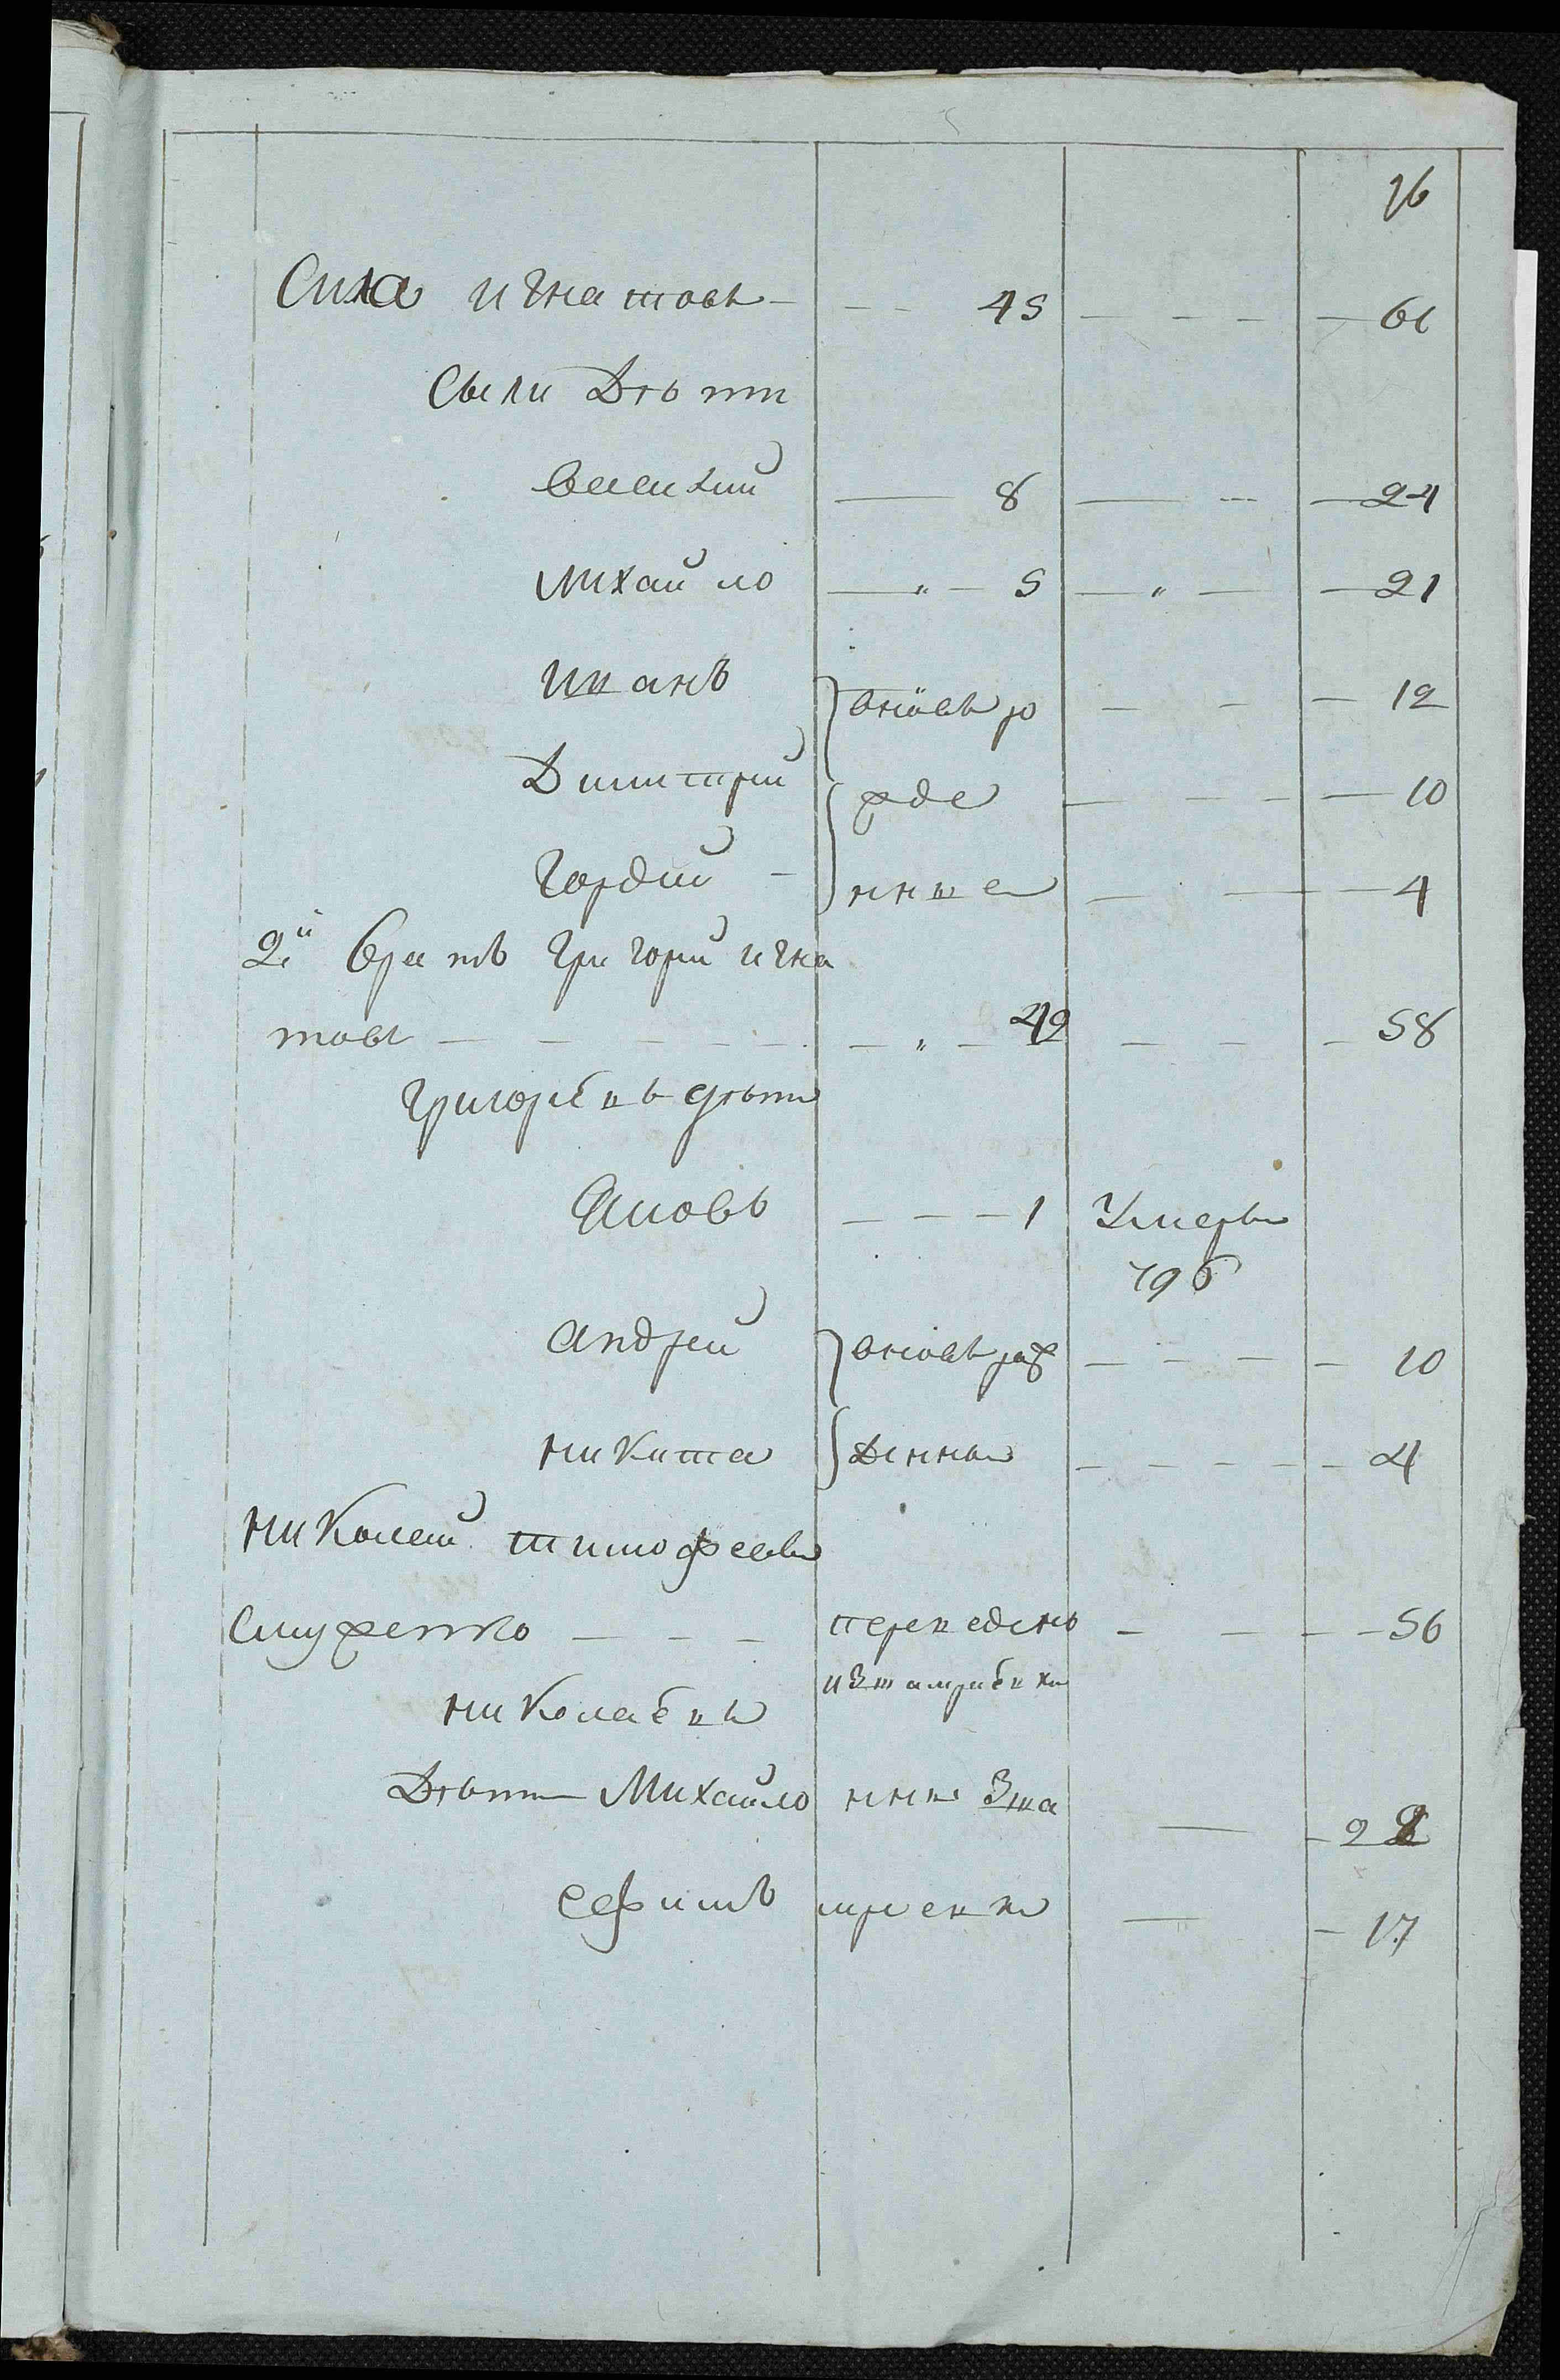 76
Сила игнатовъ 45 61
Силы Дѣти
Василий 8 24
Михайло " 5 " 21
Иванъ вновь ро 12
Димитрий жде 10
Гордий нные 4
2й братъ григорий игна
товъ " 42 58
григорьевы дѣти
Яковъ 1 Умеръ
796
андрей вновь рож 10
никита Денные 4
николай тимофеевъ
Смуженко переведенъ 56
николаевы
Дѣти Михайло 28
ефимъ 17